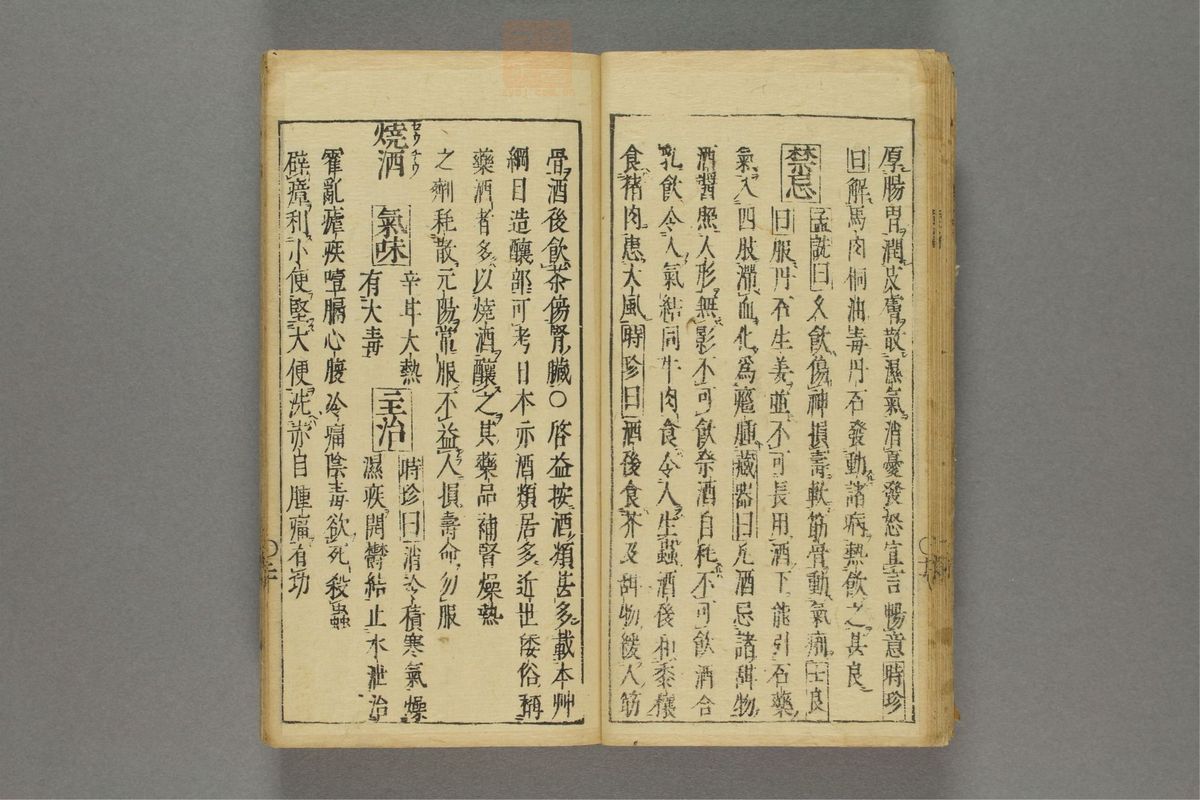 厚腸胃潤皮膚散濕氣消憂發怒宣言暢意時珍
曰解馬肉桐油毒丹石發動諸病熱飲之甚良
禁忌 孟詵曰久飲傷神損壽軟筋骨動氣痢士良
曰服丹石生姜並不可長用酒下能引石藥
氣入四肢滯血化為癰腫藏器曰凡酒忌諸甜物
酒醤照人形無影不可飲祭酒自耗不可飲酒合
乳飲令人氣結同牛肉食令人生蟲酒後和黍穰
食猪肉患大風時珍曰酒後食芥及甜物緩人筋
骨酒後飲茶傷腎臟○啓益按酒類甚多載本艸
綱目造釀部可考日本亦酒類居多近世倭俗稱
藥酒者多以燒酒釀之其藥品補腎燥熱
之劑耗散元陽常服不益人損壽命勿服
燒酒 セウチウ 氣味 辛甘大熱有大毒 主治 時珍曰消冷積寒氣燥
濕疾開鬱結止水泄治
霍亂瘧疾噎膈心腹冷痛陰毒欲死殺蟲
辟瘴利小便堅大便洗赤目腫痛有功